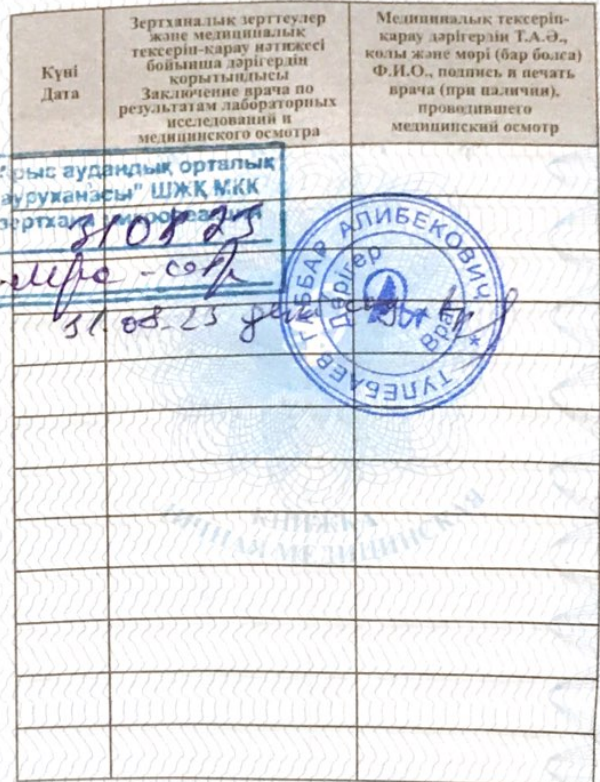 Күні
Дата
Зертханалық зерттеулер
және медициналық
тексеріп-қарау нәтижесі
бойынша дәрігердің
қорытындысы
Заключение врача по
результатам лабораторных
исследований и
медицинского осмотра
Медициналық тексеріп-
қарау дәрігердің Т.А.Ә.,
қолы және мөрі (бар болса)
Ф.И.О., подпись и печать
врача (при наличии),
проводившего
медицинский осмотр
рыс аудандық орталық
ауруханасы" ШЖҚ МКК
31 08 23
31.08.23
ТУЛЕБАЕВ ГАББАР АЛИБЕКОВИЧ *
Дәрігер
Врач
КНИЖКА
ЛИЧНАЯ МЕДИЦИНСКАЯ